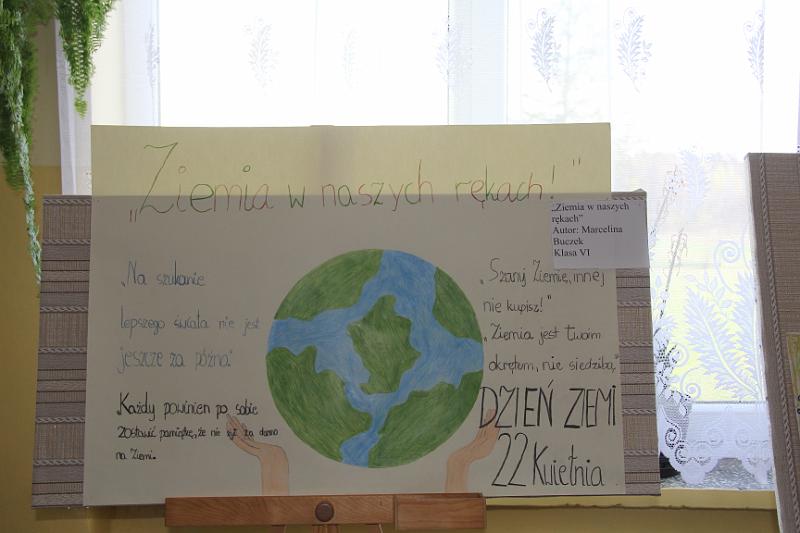 „Ziemia w naszych rękach!"
„Ziemia w naszych
rękach"
Autor: Marcelina
Buczek
Klasa VI
„Na szukanie
lepszego świata nie jest
jeszcze za późno"
Każdy powinien po sobie
zostawić pamiątkę, że nie żył za darmo
na Ziemi.
„Szanuj Ziemię, innej
nie kupisz!"
„Ziemia jest twoim
okrętem, nie siedzibą,"
DZIEŃ ZIEMI
22 Kwietnia